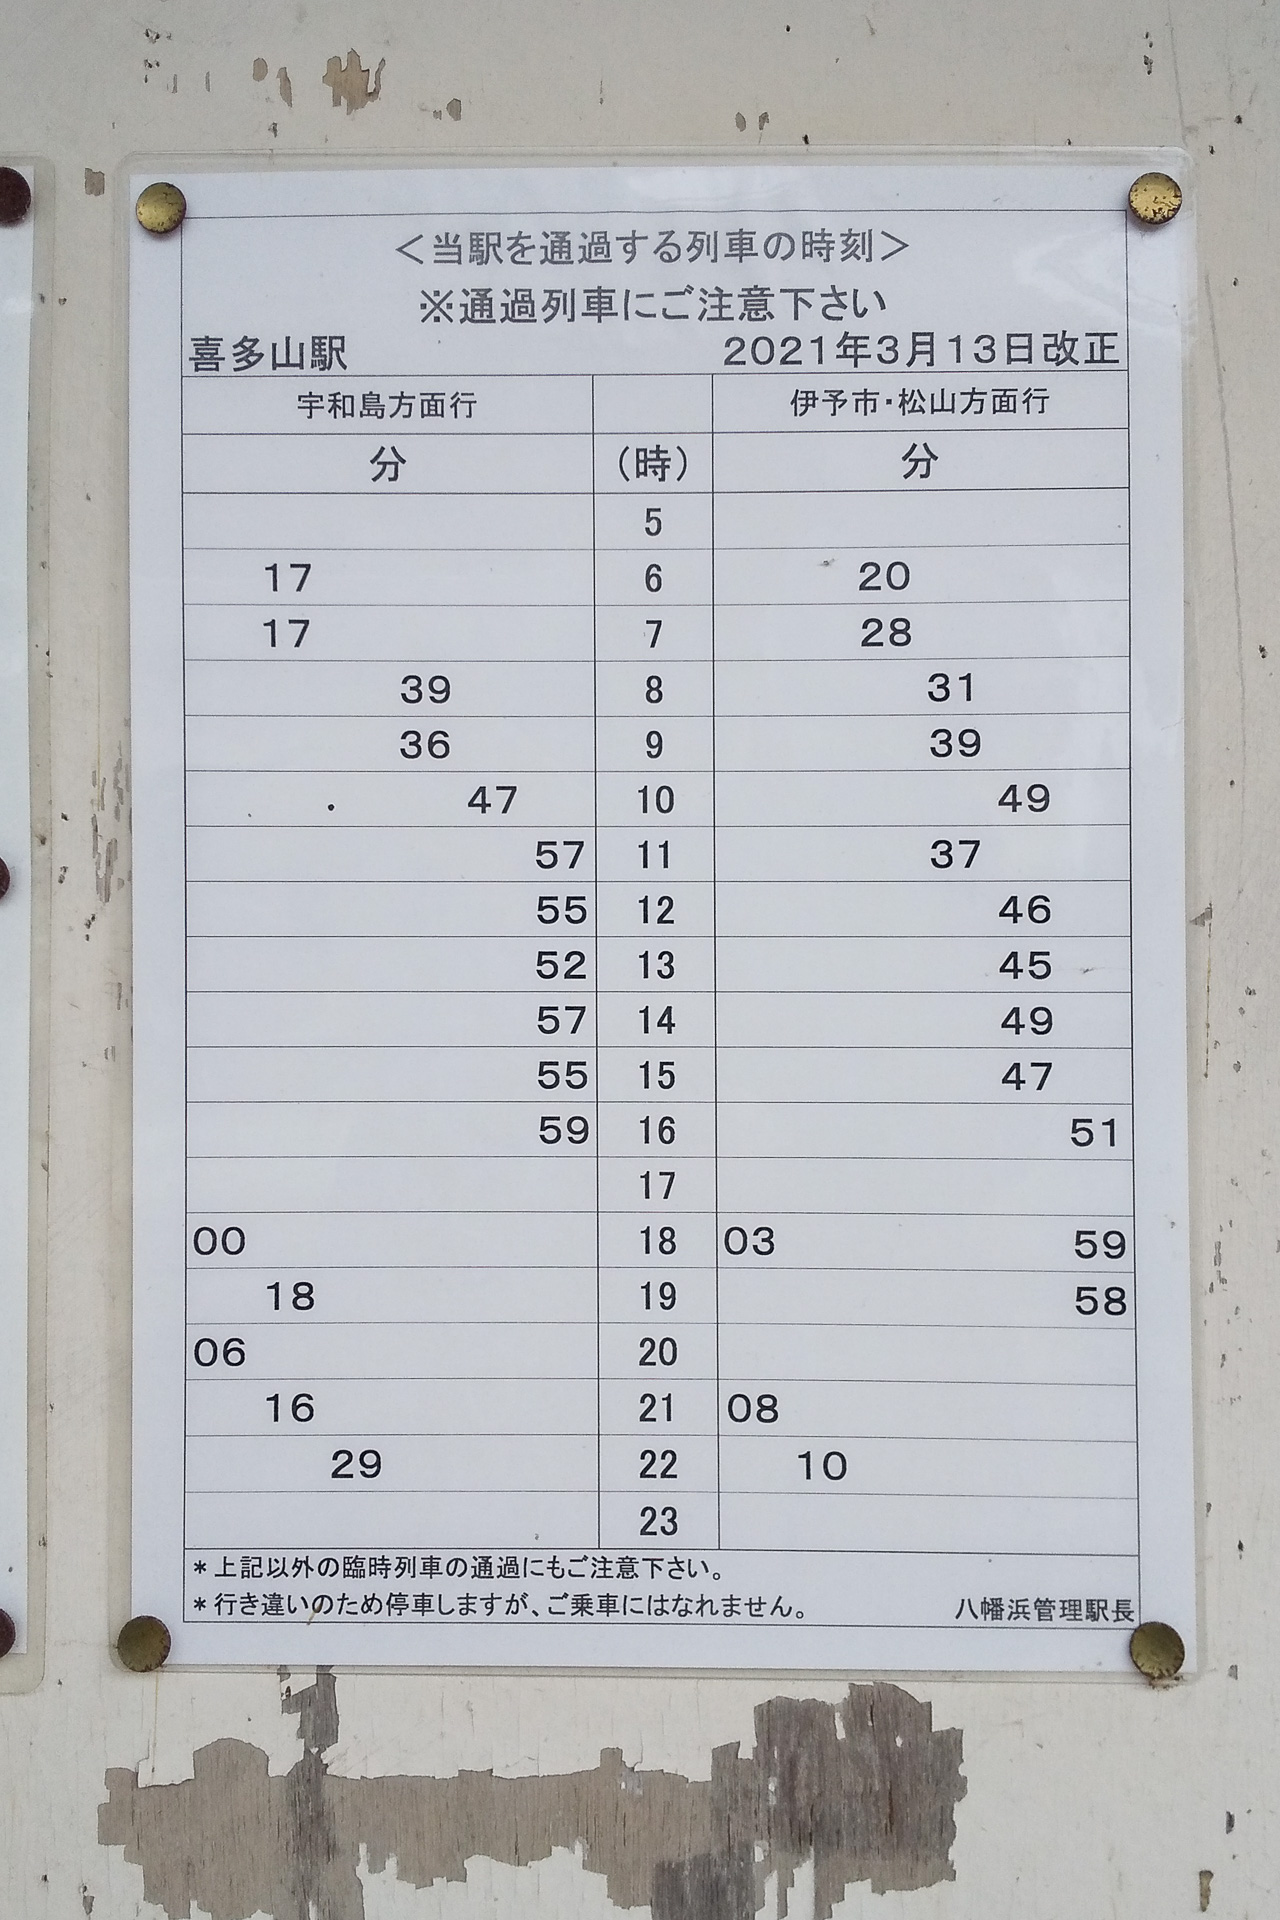 ＜当駅を通過する列車の時刻＞
※通過列車にご注意下さい
喜多山駅 2021年3月13日改正
宇和島方面行 伊予市・松山方面行
分 （時） 分
5
17 6 20
17 7 28
39 8 31
36 9 39
47 10 49
57 11 37
55 12 46
52 13 45
57 14 49
55 15 47
59 16 51
17
00 18 03 59
18 19 58
06 20
16 21 08
29 22 10
23
＊上記以外の臨時列車の通過にもご注意下さい。
＊行き違いのため停車しますが、ご乗車にはなれません。 八幡浜管理駅長